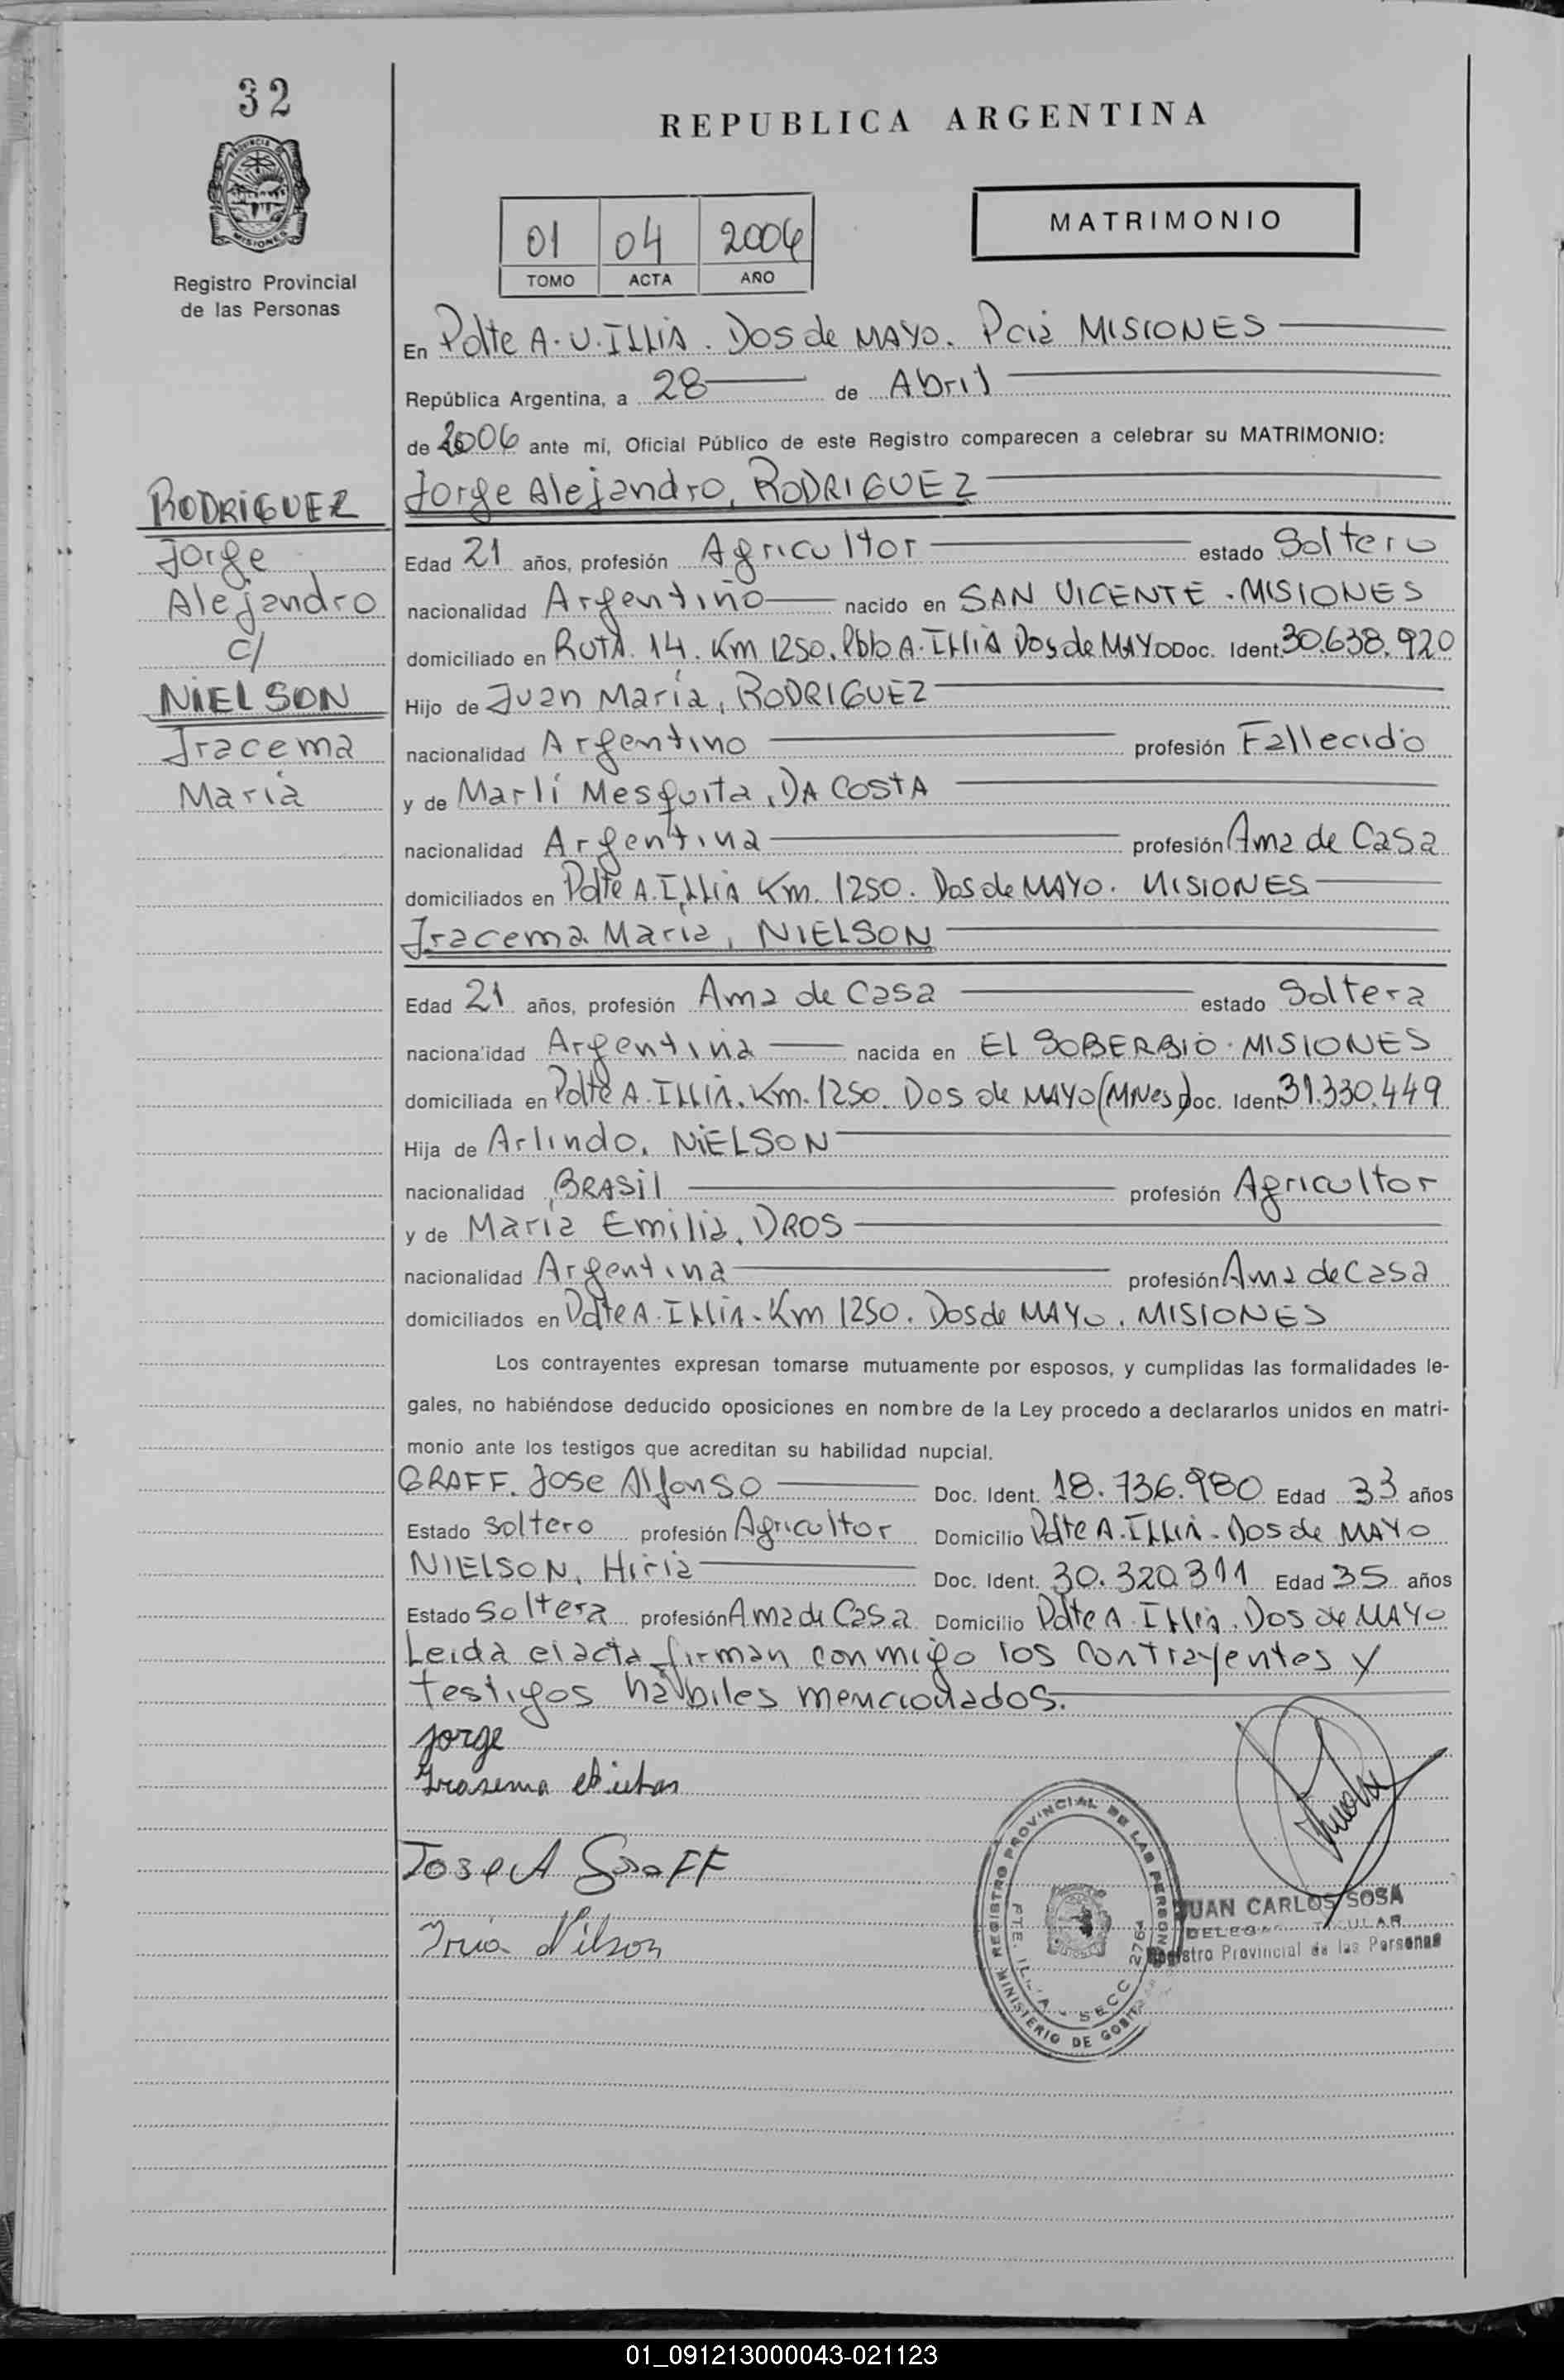 32
REPUBLICA ARGENTINA
PROVINCIA DE MISIONES
Registro Provincial
de las Personas
01 04 2006
TOMO ACTA AÑO
MATRIMONIO
En Pdte A. U. ILLIA. Dos de MAYO. Pcia MISIONES
República Argentina, a 28 de Abril
de 2006 ante mí, Oficial Público de este Registro comparecen a celebrar su MATRIMONIO:
RODRIGUEZ
Jorge
Alejandro
c/
NIELSON
Iracema
Maria
Jorge Alejandro, RODRIGUEZ
Edad 21 años, profesión Agricultor estado Soltero
nacionalidad Argentino nacido en SAN VICENTE. MISIONES
domiciliado en RUTA. 14. Km 1250. Pblo A. Illia Dos de MAYO Doc. Ident. 30.638.920
Hijo de Juan María, RODRIGUEZ
nacionalidad Argentino profesión Fallecido
y de Marlí Mesquita, DA COSTA
nacionalidad Argentina profesión Ama de Casa
domiciliados en Pdte A. Illia Km. 1250. Dos de MAYO. MISIONES
Iracema Maria, NIELSON
Edad 21 años, profesión Ama de Casa estado Soltera
naciona'idad Argentina nacida en El SOBERBIO. MISIONES
domiciliada en Pdte A. Illia. Km. 1250. Dos de MAYO (MNes) Doc. Ident. 31.330.449
Hija de Arlindo. NIELSON
nacionalidad BRASil profesión Agricultor
y de María Emilia, DROS
nacionalidad Argentina profesión Ama de Casa
domiciliados en Pdte A. Illia. Km 1250. Dos de MAYO. MISIONES
Los contrayentes expresan tomarse mutuamente por esposos, y cumplidas las formalidades le-
gales, no habiéndose deducido oposiciones en nombre de la Ley procedo a declararlos unidos en matri-
monio ante los testigos que acreditan su habilidad nupcial.
GRAFF. Jose Alfonso Doc. Ident. 18.736.980 Edad 33 años
Estado Soltero profesión Agricultor Domicilio Pdte A. Illia. Dos de MAYO
NIELSON, Hiria Doc. Ident. 30.320.311 Edad 35 años
Estado Soltera profesión Ama de Casa Domicilio Pdte A. Illia. Dos de MAYO
Leida el acta firman conmigo los contrayentes y
testigos hábiles mencionados.
Jorge
Irasema
Jose A Graff
Iria Nilson
REGISTRO PROVINCIAL DE LAS PERSONAS
MINISTERIO DE
SECC 276
JUAN CARLOS SOSA
Registro Provincial de las Personas
01_091213000043-021123